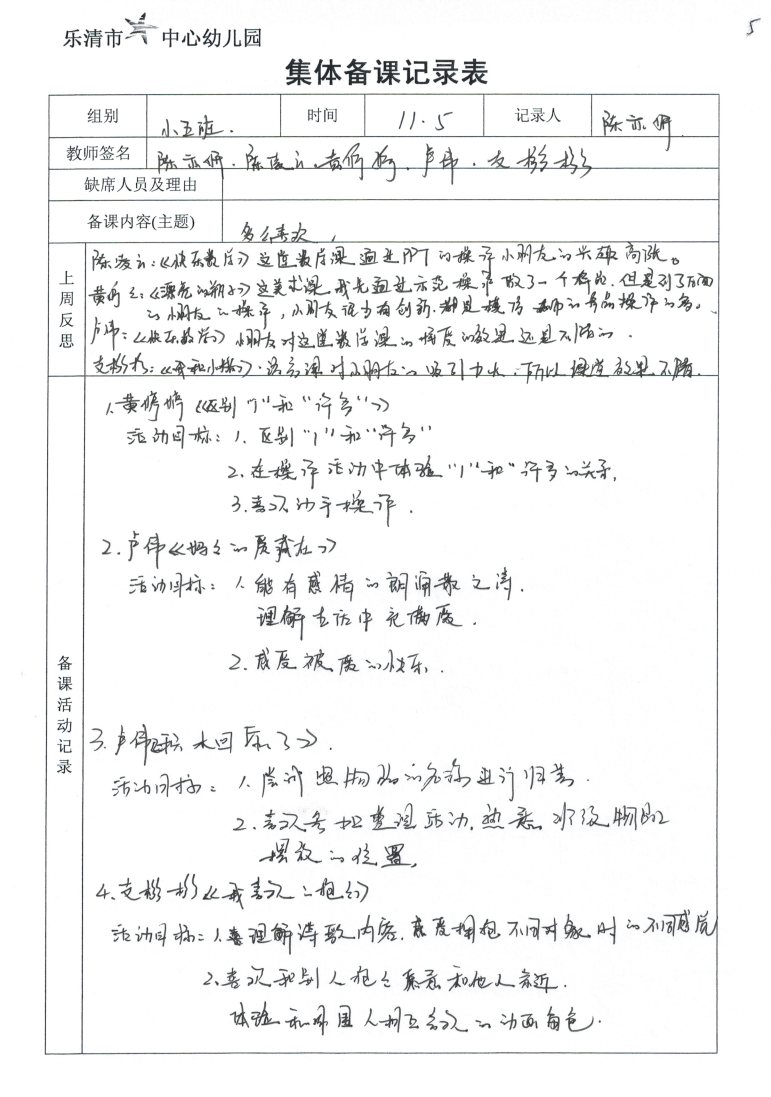 乐清市 中心幼儿园
5
集体备课记录表
组别 小五班. 时间 11.5 记录人 陈亦妍.
教师签名 陈亦妍. 陈凌云. 黄婷婷. 卢伟. 支彬彬
缺席人员及理由
备课内容(主题) 多么喜欢,
上周反思
陈凌云:《快乐数学》这堂数学课通过PPT的操作小朋友的兴趣高涨。
黄婷婷:《漂亮的瓶子》这美术课,我先通过示范操作做了一个样品,但是到了后面
的小朋友的操作,小朋友没有创新都是模仿老师的
卢伟:《快乐数学》小朋友对这堂数学课的 度的效果还是不错的.
支彬彬:《 》.语言课对小朋友的吸引力大,所以课堂效果不错.
备课活动记录
1.黄婷婷《区别"1"和"许多"》
活动目标: 1.区别"1"和"许多"
2.在操作活动中体验"1"和"许多"的关系.
3.喜欢动手操作.
2.卢伟《妈妈的爱藏在》
活动目标: 1.能有感情的朗诵散文诗.
理解生活中充满爱.
2.感受被爱的快乐.
3.卢伟 回家了》.
活动目标: 1.尝试照物品的名称进行归类.
2.喜欢参加整理活动,熟悉班级物品
摆放的位置.
4.支彬彬《我喜欢的抱抱》
活动目标: 1.理解诗歌内容,感受拥抱不同对象时的不同感觉
2.喜欢和别人抱抱愿意和他人亲近.
体验和 人相互 的动画角色.